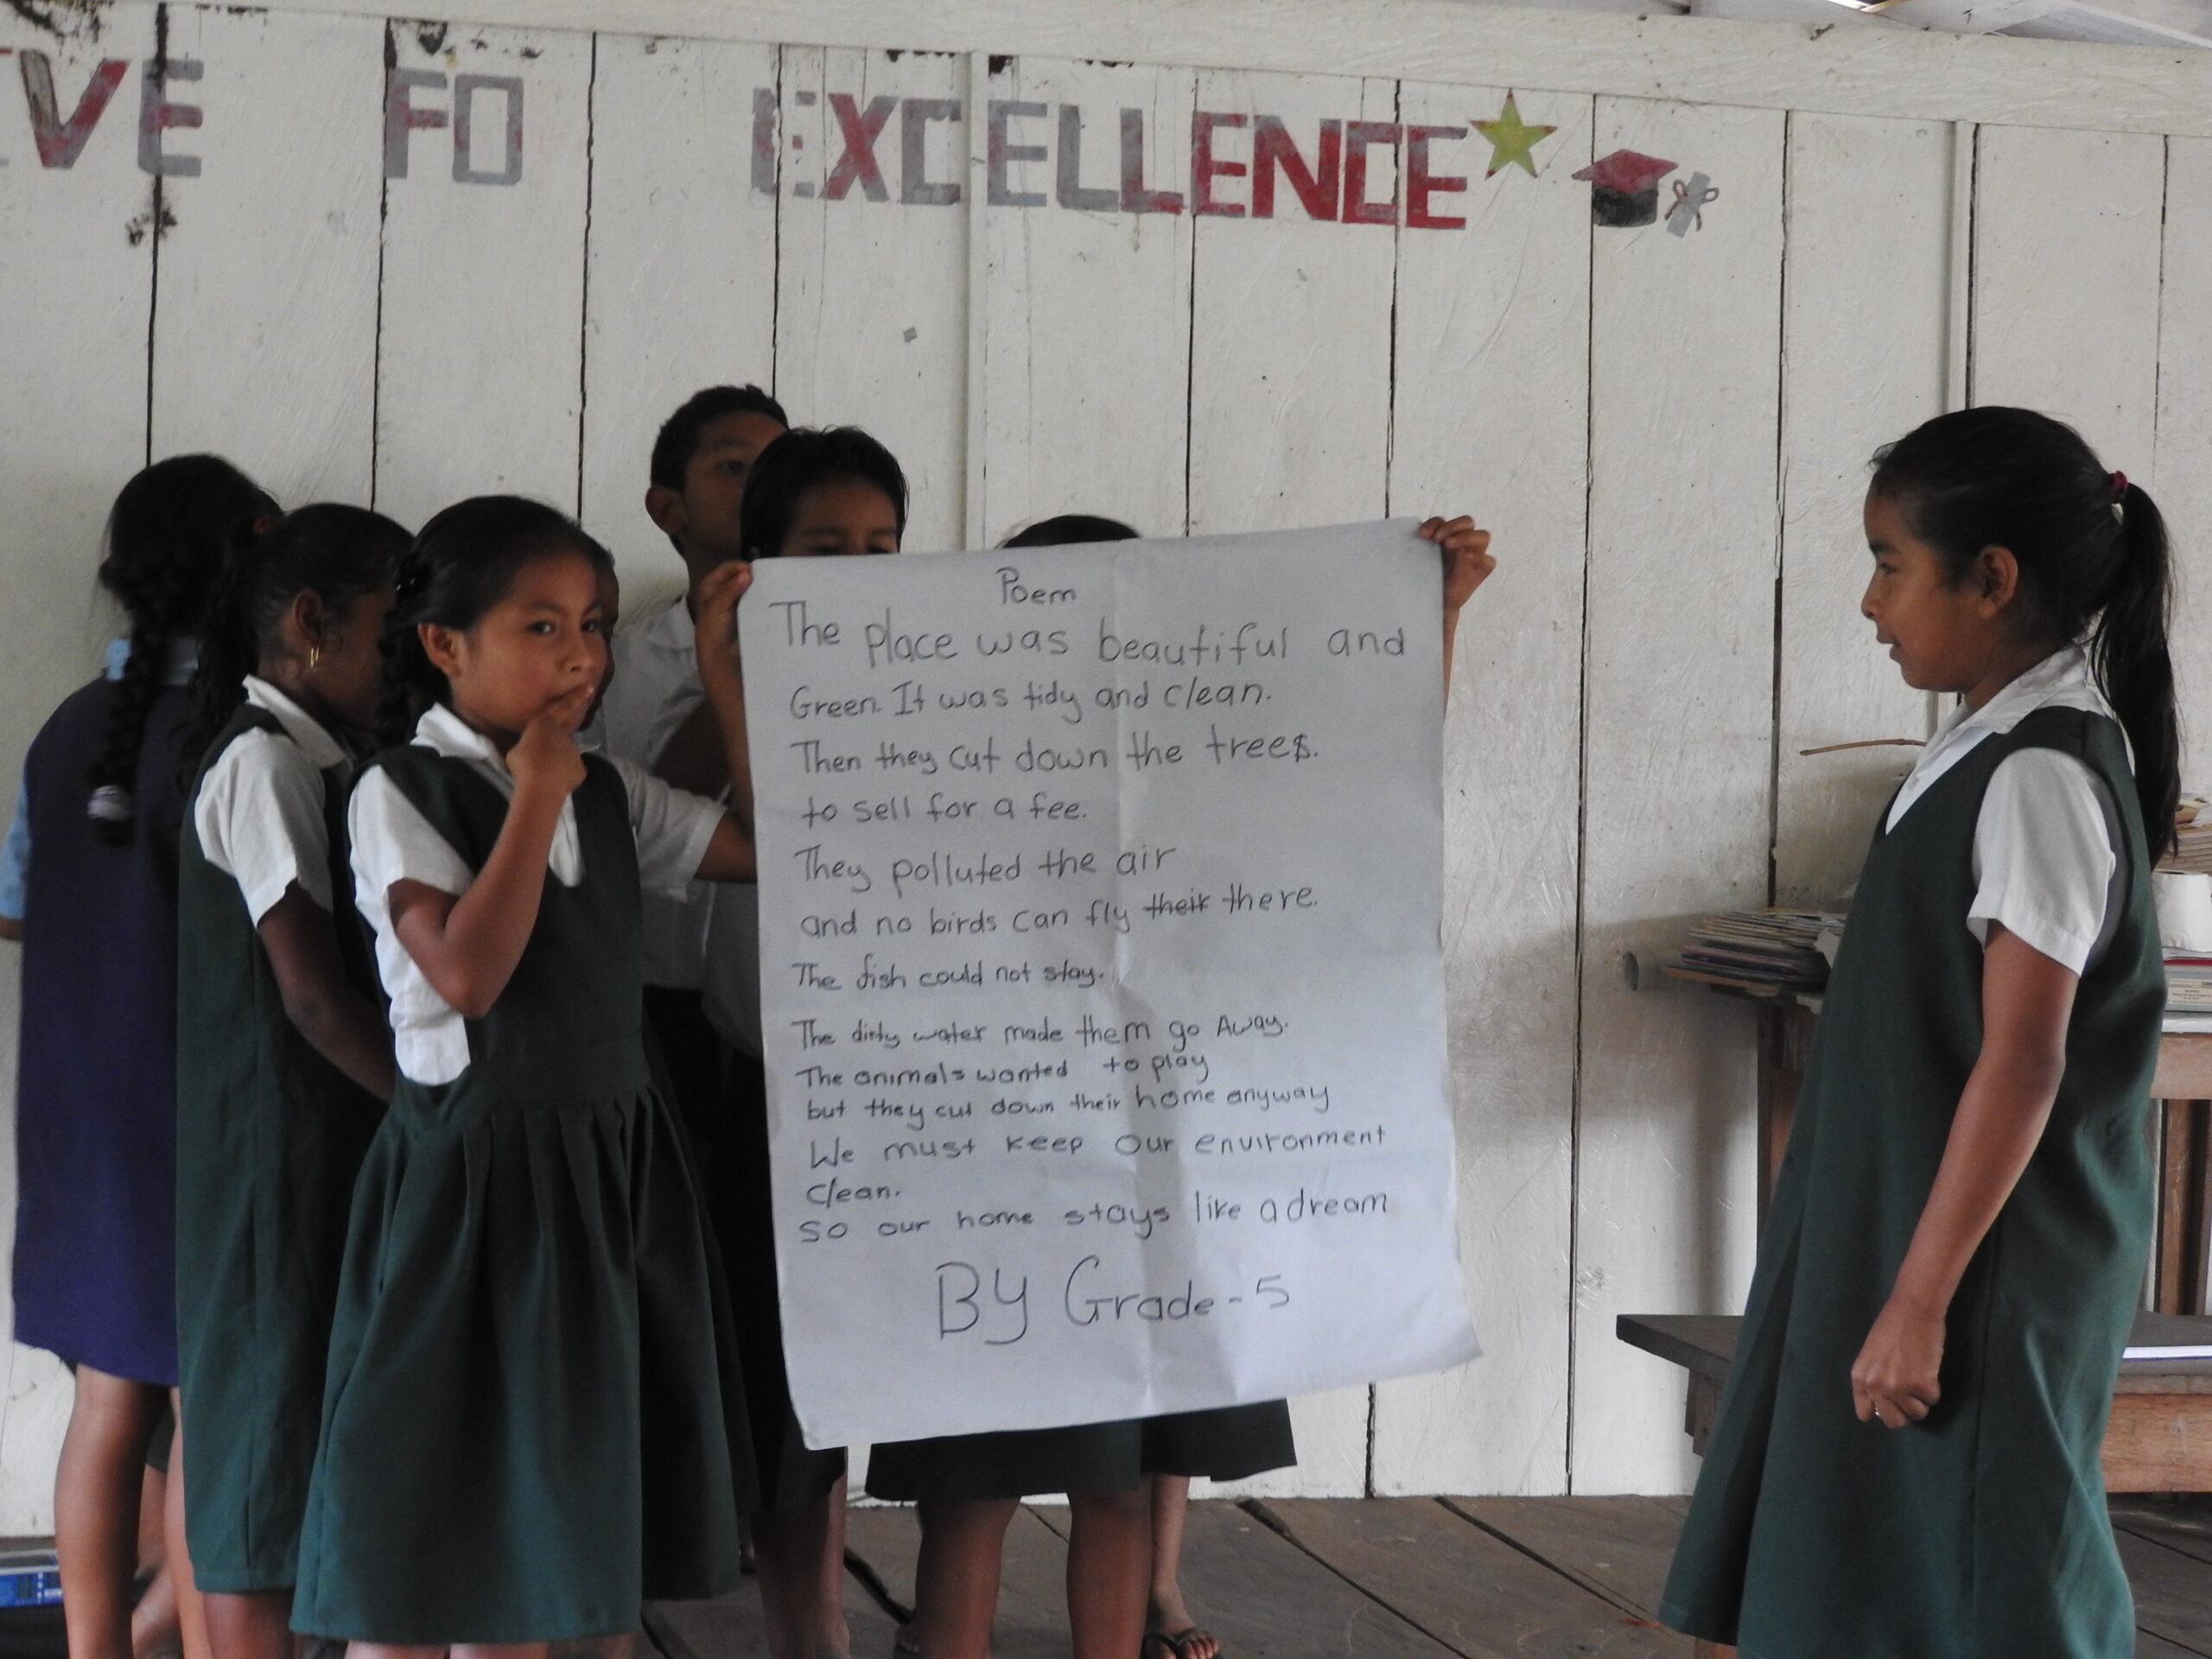 VE FO EXCELLENCE
Poem
The place was beautiful and
Green. It was tidy and clean.
Then they cut down the trees.
to sell for a fee.
They polluted the air
and no birds can fly their there.
The fish could not stay.
The dirty water made them go Away.
The animals wanted to play
but they cut down their home anyway
We must keep our environment
clean.
so our home stays like a dream
By Grade-5